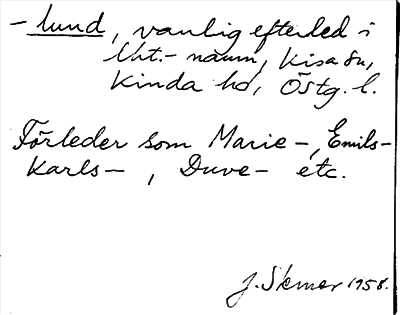 -lund, vanlig efterled i
Uht.-namn, Kisa sn,
Kinda hd, Östg. l.
Förleder som Marie-, Emils-
Karls-, Duve- etc.
J. Skener 1958.